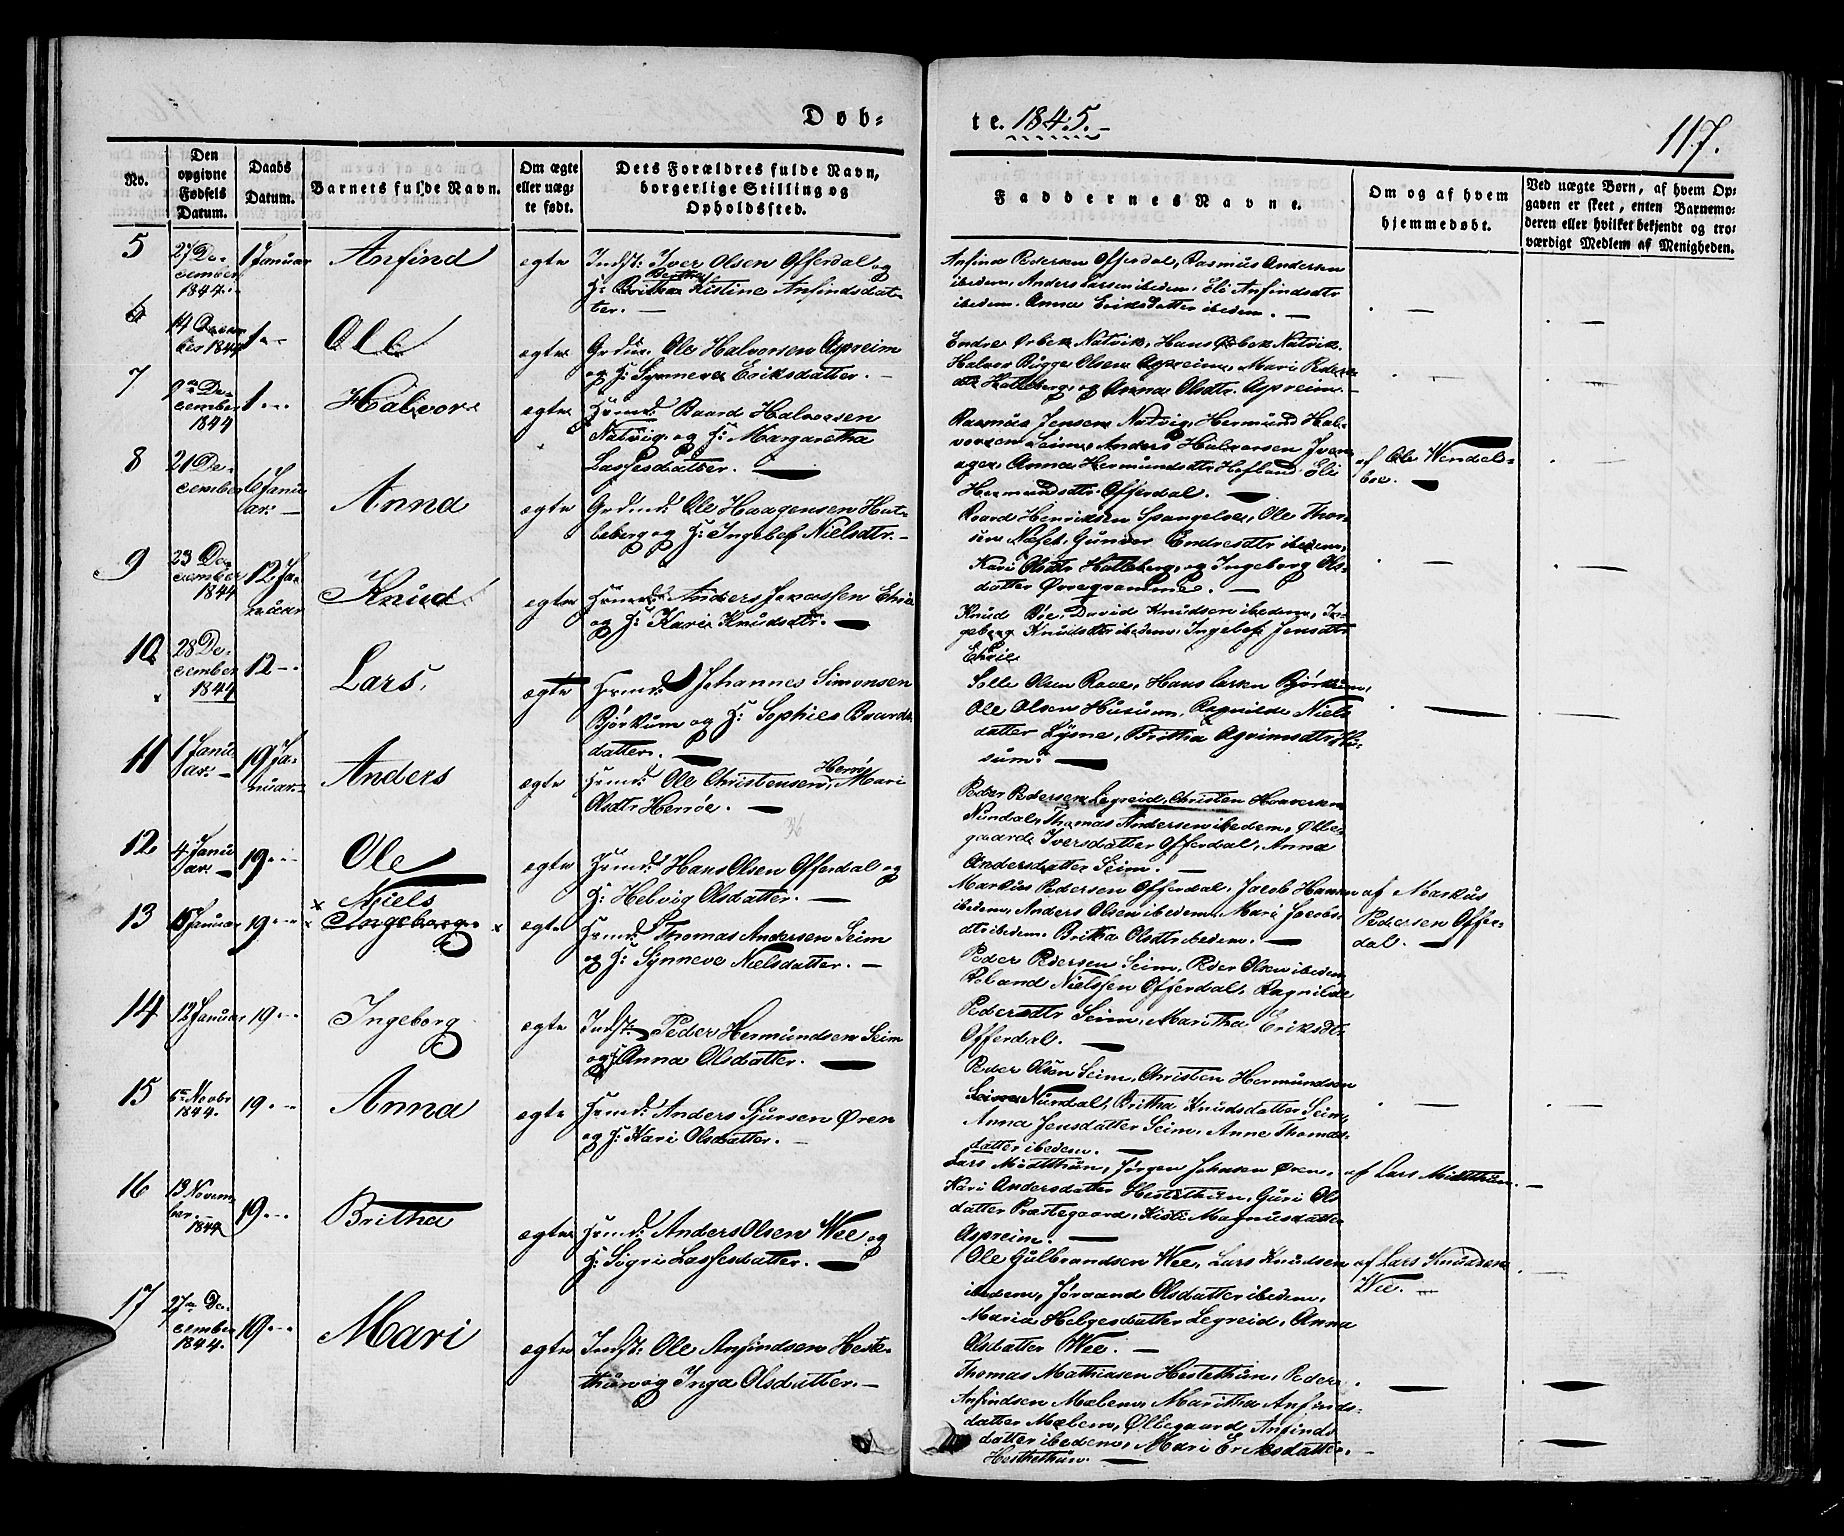 Døb-
te. 1845.-
117.
No.
Den opgivne Fødsels Datum.
Daabs Datum.
Barnets fulde Navn.
Om ægte eller uæg-te født.
Dets Forældres fulde Navn, borgerlige Stilling og Opholdssted.
Faddernes Navne.
Om og af hvem hjemmedøbt.
Ved uægte Børn, af hvem Op-
gaven er skeet, enten Barnemo-
deren eller hvilket bekjendt og tro-
værdigt Medlem af Menigheden.
5
27 De-
cember
1844.
1 Januar
Anfind
egte
Indst: Iver Olsen Offerdal og
H: Bertha Kistine Anfindsdat-
ter. —
Anfind Pedersen Offerdal, Rasmus Andersen
ibedem, Anders Larsen ibedem, Eli Anfindsdtr
ibedem. Anna Eriksdatter ibedem. —
6
14 Decem
ber 1844
1 --
Ole
egte
Grdm: Ole Halvorsen Aspreim
og H: Synneve Eriksdatter. —
Endre Ørbek Natvik, Hans Ørbek Natvik.
Halvor Bygge Olsen Aspreim, Mari Peders
dtr Hatleberg, og Anna Olsdtr. Aspreim. —
7
9de De-
cember
1844
1 --
Halvor
egte
Hrmd: Baard Halvorsen
Natvig, og H: Margaretha
Lassesdatter. —
Rasmus Jensen Natvig, Hermund Hal-
vorsen Seim, Anders Halvorsen
ager, Anna Hermundsdtr Hofland Eli
Hermundsdtr Offerdal. —
af Ole Wendels-
boe. —
8
21 De-
cember
6 Janu
ar. —
Anna
egte
Grdmd: Ole Haagensen Hat-
leberg og H: Ingelef Nielsdtr. —
Baard Henriksen Spangeloe, Ole Thor-
sen Næset, Gunvor Endresdtr ibedem,
Kari Olsdtr Hatleberg, og Ingeborg Ols-
datter Øvregramme. —
9
23 De-
cember
1844
12 Ja-
nuar
Knud
egte
Hrmd: Anders Jonassen Ehrie
og H: Kari Knudsdtr. —
Knud Boe, David Knudsen ibedem, In-
geborg Knudsdtr ibedem, Ingelef Jensdtr
Ehrie
10
28 De-
cember
1844
12 --
Lars,
egte
Hrmd: Johannes Simonsen
Bjørkum og H: Sophie Baards
datter. —
Solle Olsen Raae, Hans Larsen Bjørkum,
Ole Olsen Husum, Ragnilde Niels
datter Lysne, Britha Agrimsdtr Hu-
sum. —
11
1 Janu
ar. —
19 Ja-
nuar. —
Anders
egte
Hrmd: Ole Christensen Herrø, Mari
Olsdtr Herrøe. —
Peder Pedersen Legreid, Christen Haaversen
Nundal, Thomas Andersen ibedem, Olle-
gaarde Iversdatter Offerdal, Anna
Andersdatter Seim. —
12
4 Janu
ar. —
19 --
Ole
egte
Hrmd: Hans Olsen Offerdal og
H: Helvig Olsdatter. —
Markus Pedersen Offerdal, Jacob Hansen
ibedem, Anders Olsen ibedem, Mari Jacobs-
dtr ibedem. Britha Olsdtr ibedem. —
af Markus
Pedersen Offer-
dal. —
13
Januar
19 --
x Niels
x Ingeborg x
egte
Hrmd: Thomas Andersen Seim
og H: Synneve Nielsdatter. —
Peder Pedersen Seim, Peder Olsen ibedem
Roland Nielssen Offerdal, Ragnilde
Pedersdtr Seim, Maritha Eriksdt-
Offerdal. —
14
12 Januar
19 --
Ingeborg
egte
Indst: Peder Hermundsen Seim
og H: Anna Olsdatter. —
Peder Olsen Seim, Christen Hermundsen
Seim Nundal, Britha Knudsdatter Seim,
Anna Jensdatter Seim, Anne Thomas-
datter ibedem. —
15
6te Novbr
1844.
19 --
Anna
egte
Hrmd: Anders Sjursen Øren
og H: Kari Olsdatter. —
Lars Midtthun, Jørgen Johnsen Øren,
Kari Andersdatter Hestethun, Guri Ols
datter Præstegaard, Kisti Magnusdatter
Aspreim. —
af Lars Midtthun. —
16
13 Novem
ber. —
1844
19 --
Britha
egte
Hrmd: Anders Olsen Wee og
H: Sogri Lassesdatter. —
Ole Gulbrandsen Wee, Lars Knudsen
ibedem, Jøraand Olsdatter ibedem,
Maria Helgesdatter Legreid, Anna
Olsdatter Wee. —
af Lars Knudsen
Wee. —
17
27de De-
cember
1844.
19 --
Mari
egte
Indst: Ole Anfindsen Heste-
thun og Inga Olsdatter. —
Thomas Mathiasen Hestethun, Peder
Anfindsen Mælem, Maritha Anfinds-
datter Mælem, Øllegaard Anfinds
datter ibedem, Mari Eriksdatter
Hesthethun. —